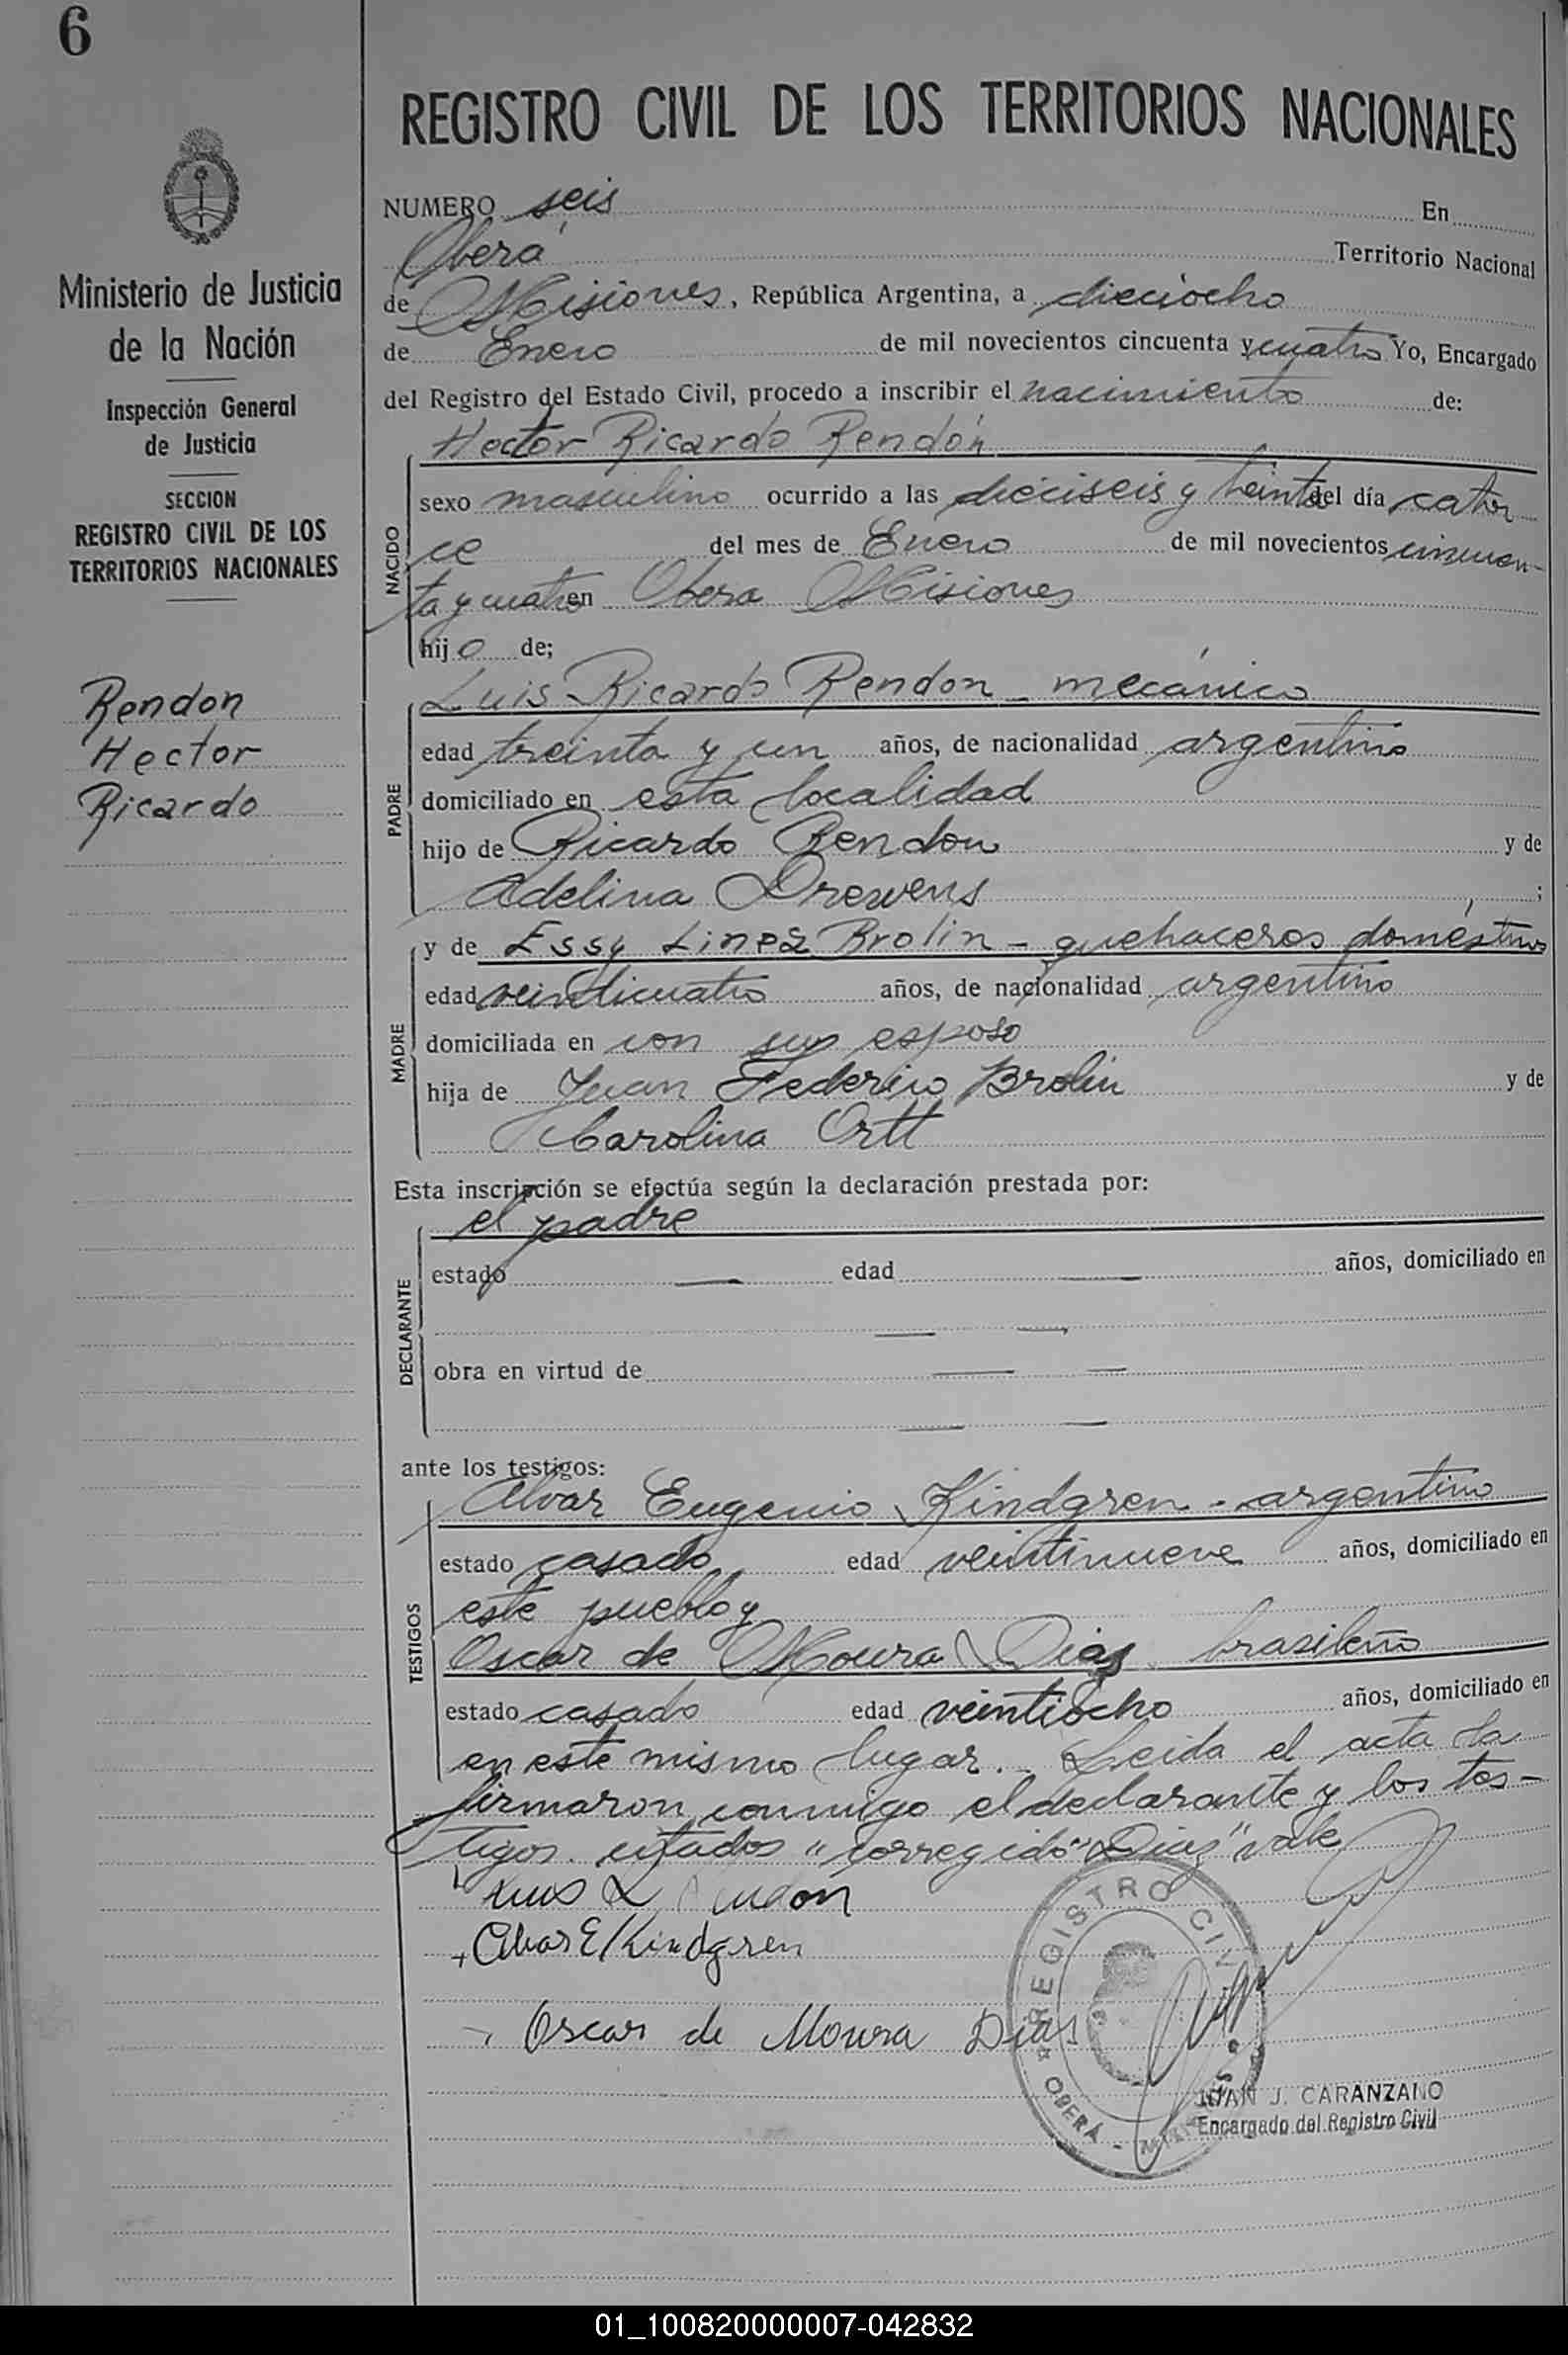 6
REGISTRO CIVIL DE LOS TERRITORIOS NACIONALES
Ministerio de Justicia
de la Nación
Inspección General
de Justicia
SECCION
REGISTRO CIVIL DE LOS
TERRITORIOS NACIONALES
Rendon
Hector
Ricardo
NUMERO seis En
Oberá Territorio Nacional
de Misiones, República Argentina, a dieciocho
de Enero de mil novecientos cincuenta y cuatro Yo, Encargado
del Registro del Estado Civil, procedo a inscribir el nacimiento de:
Hector Ricardo Rendón
NACIDO
sexo masculino ocurrido a las dieciseis y treinta del día cator
ce del mes de Enero de mil novecientos cincuen-
ta y cuatro en Obera Misiones
hijo de;
Luis Ricardo Rendon - mecánico
PADRE
edad treinta y un años, de nacionalidad argentino
domiciliado en esta localidad
hijo de Ricardo Rendon y de
Adelina Drewens ;
y de Essy Brolin - quehaceres domésticos
MADRE
edad veinticuatro años, de nacionalidad argentino
domiciliada en con su esposo
hija de Juan Federico Brolin y de
Carolina Ortt
Esta inscripción se efectúa según la declaración prestada por:
el padre
DECLARANTE
estado — edad — años, domiciliado en
— —
obra en virtud de — —
— —
ante los testigos:
Alvar Eugenio Kindgren - argentino
TESTIGOS
estado casado edad veintinueve años, domiciliado en
este pueblo y
Oscar de Moura Dias brasileño
estado casado edad veintiocho años, domiciliado en
en este mismo lugar. - Leida el acta la
firmaron conmigo el declarante y los tes-
tigos citados "corregido" Dias" vale
Luis
Alvar E Kindgren
Oscar de Moura Dias
REGISTRO CIVIL
OBERÁ - MISIONES
JUAN J. CARANZANO
Encargado del Registro Civil
01_100820000007-042832